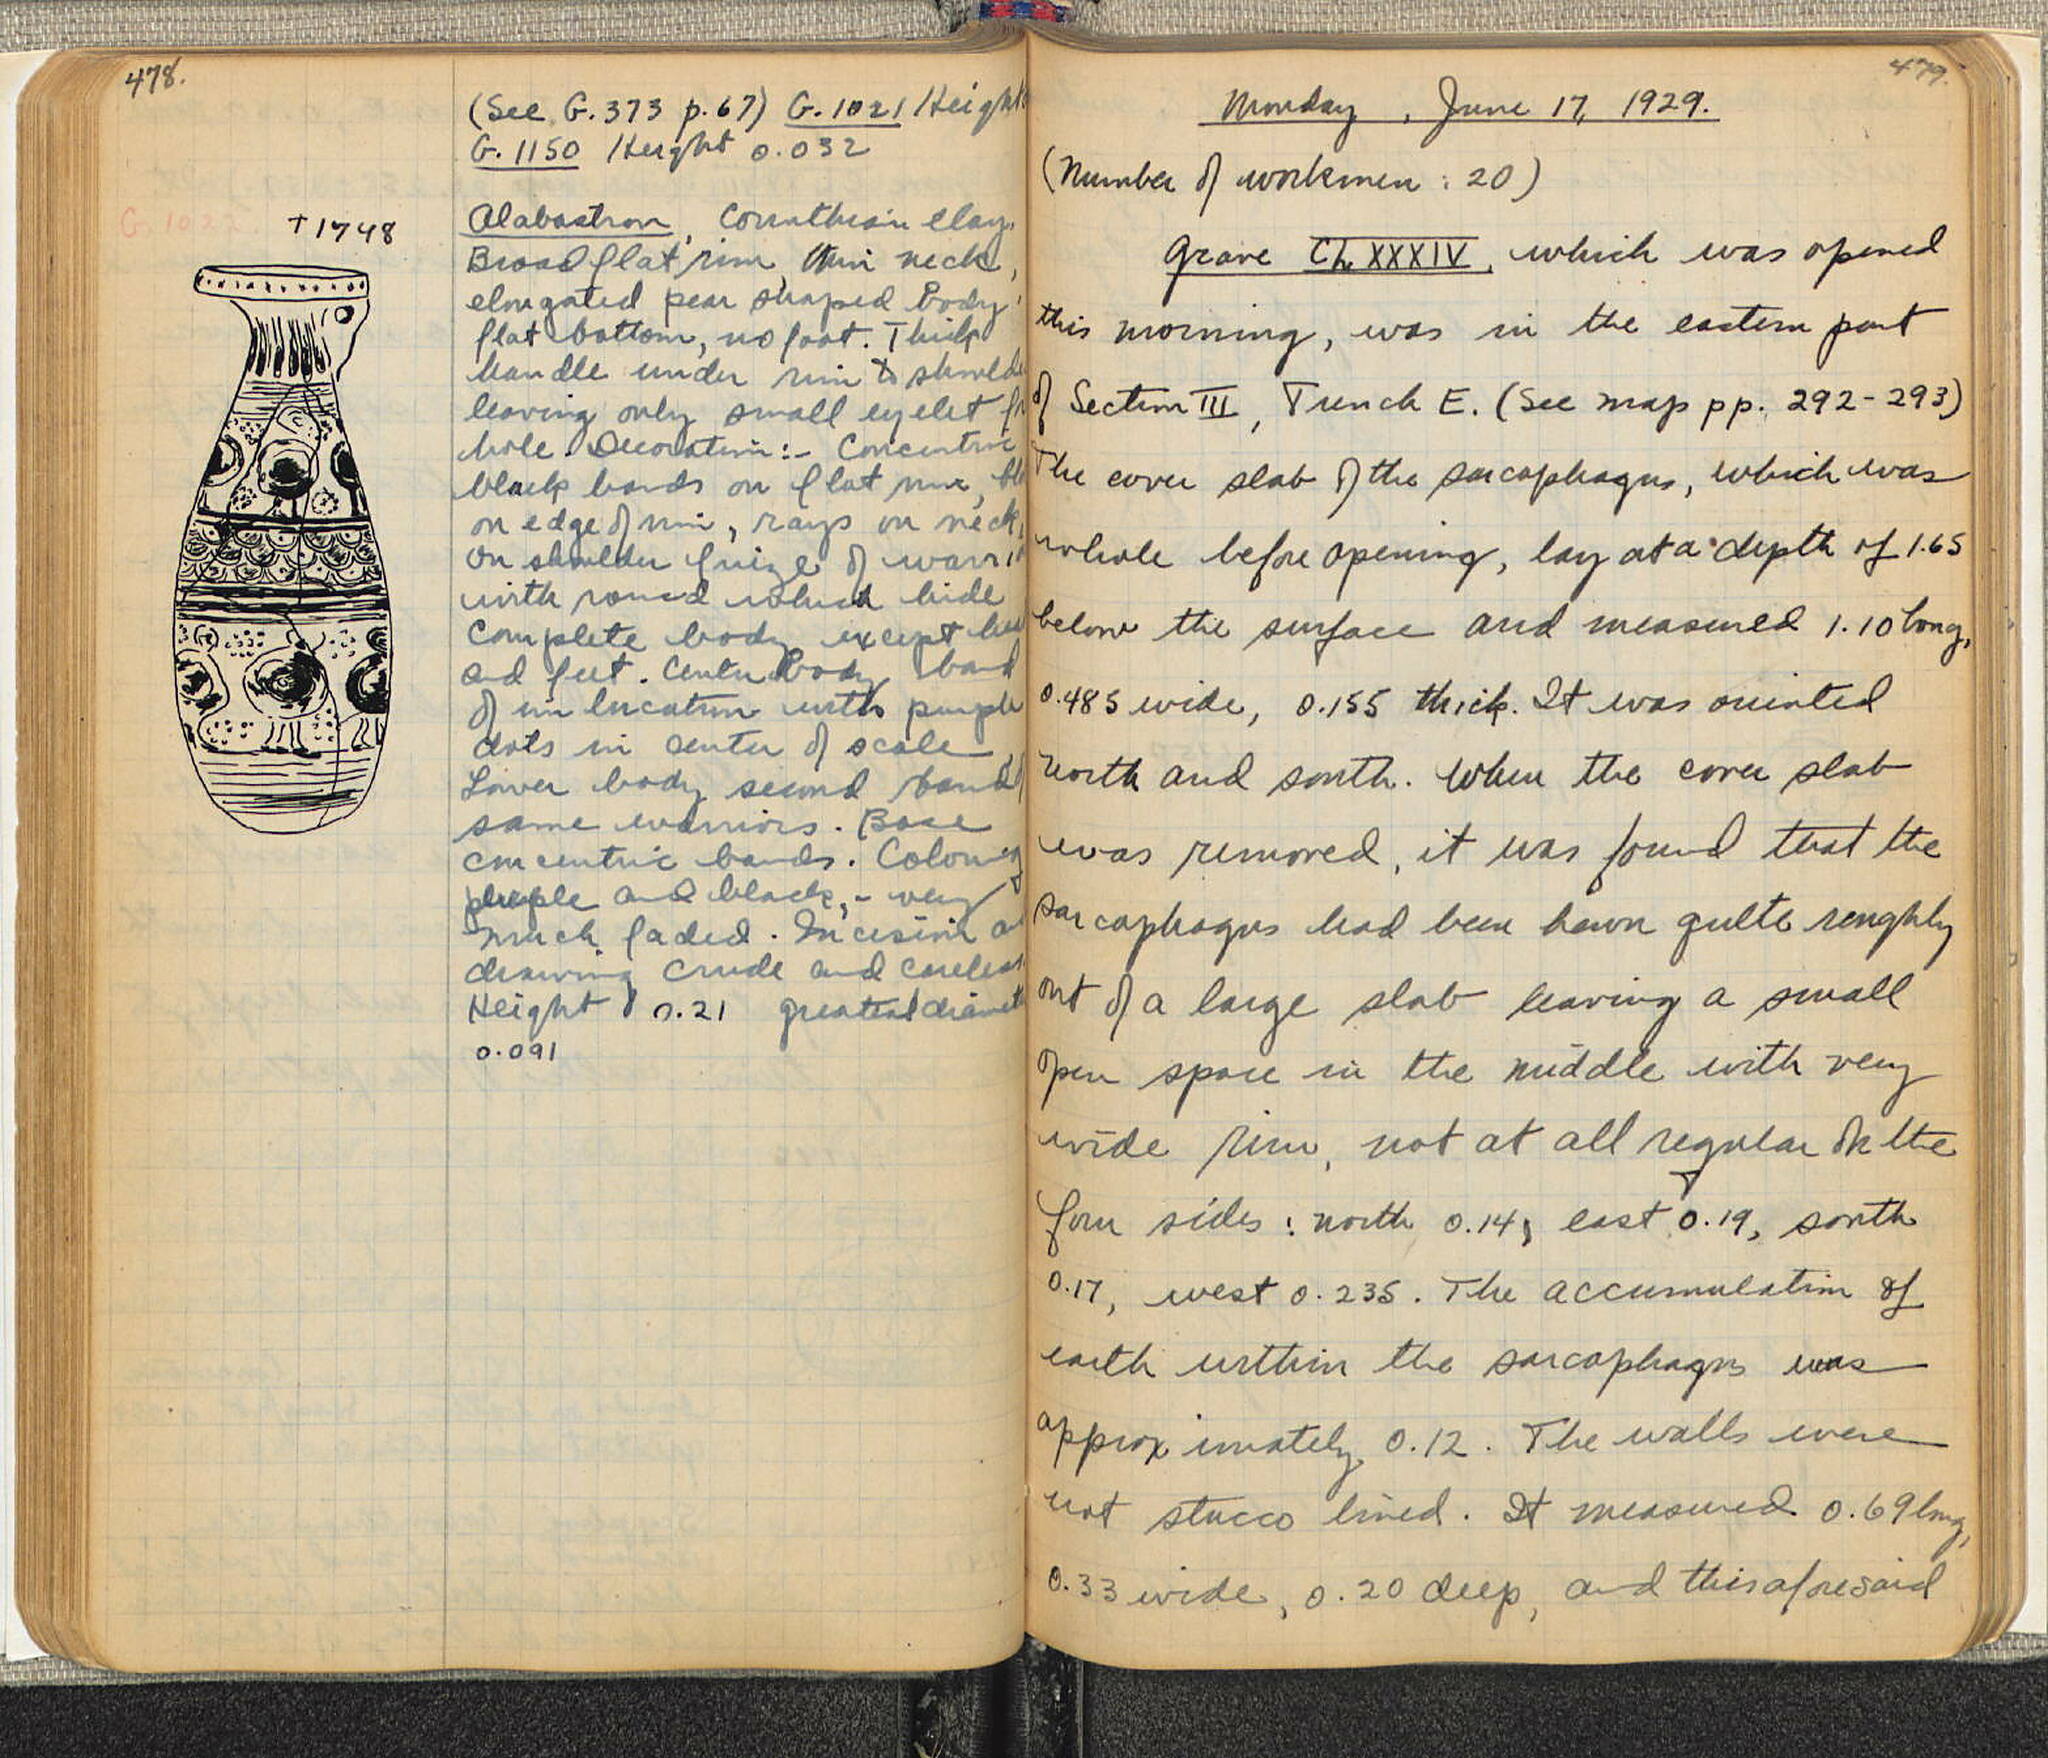 478.
(See G. 373 p. 67) G. 1021 Height
G. 1150 Height 0.032
G. 1022 +1748
Alabastron, Corinthian clay.
Broad flat rim, thin neck,
elongated pear shaped body,
flat bottom, no foot. Thick
handle under rim to shoulde
leaving only small eyelet
hole. Decoration:- Concentric
black bands on flat rim,
on edge of rim, rays on neck,
On shoulder frieze of warri
with round which hide
complete body except
and feet. Center body band
of imbrication with purple
dots in center of scale
Lower body second band of
same warriors. Base
concentric bands. Coloring
purple and black, - very
much faded. Incision
drawing crude and careless.
Height 0.21 greatest diamet
0.091
479.
Monday, June 17, 1929.
(Number of workmen : 20)
Grave Ch XXXIV, which was opened
this morning, was in the eastern part
of Section III, Trench E. (See map pp. 292-293)
The cover slab of the sarcophagus, which was
whole before opening, lay at a depth of 1.65
below the surface and measured 1.10 long,
0.485 wide, 0.155 thick. It was oriented
north and south. When the cover slab
was removed, it was found that the
sarcophagus had been hewn quite roughly
out of a large slab leaving a small
open space in the middle with very
wide rim, not at all regular on the
four sides: north 0.14, east 0.19, south
0.17, west 0.235. The accumulation of
earth within the sarcophagus was
approximately 0.12. The walls were
not stucco lined. It measured 0.69 long,
0.33 wide, 0.20 deep, and this aforesaid